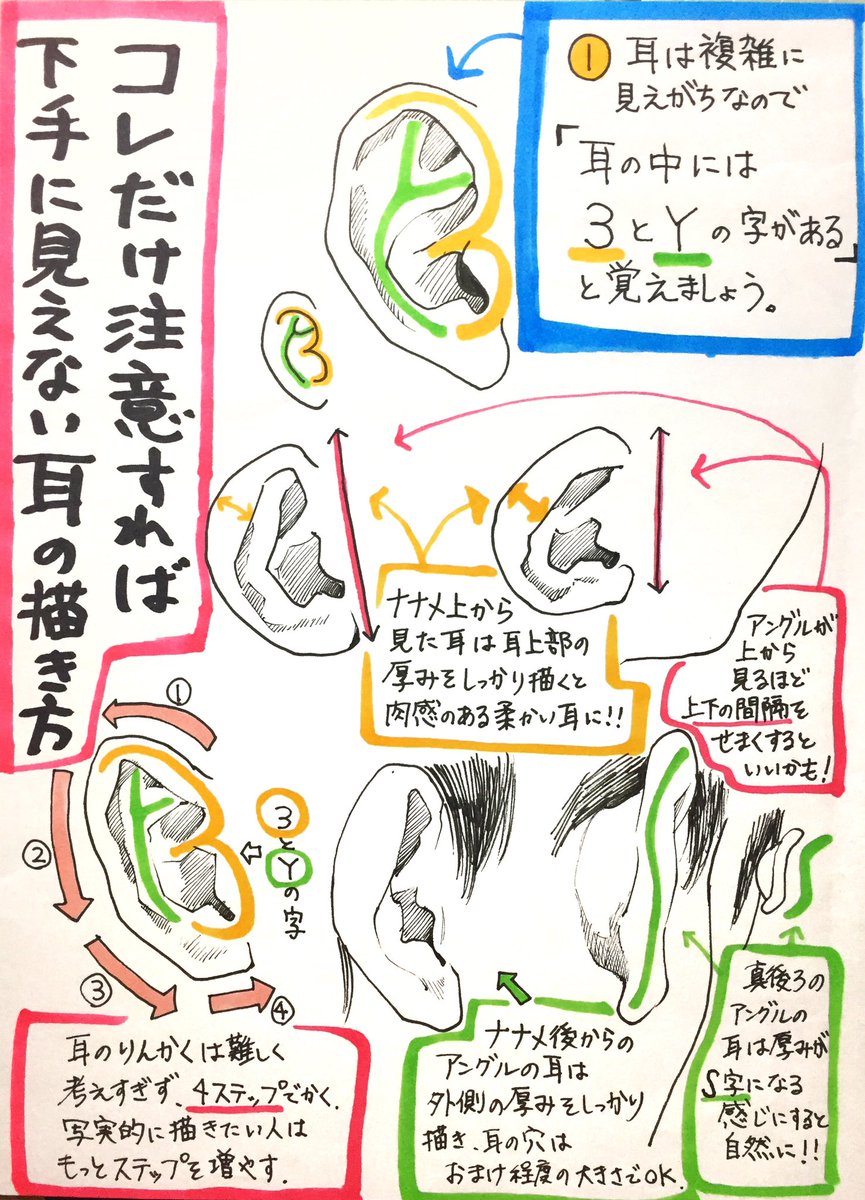 コレだけ注意すれば
下手に見えない耳の描き方
① 耳は複雑に
見えがちなので
「耳の中には
3とYの字がある」
と覚えましょう。
ナナメ上から
見た耳は耳上部の
厚みをしっかり描くと
肉感のある柔かい耳に!!
アングルが
上から
見るほど
上下の間隔を
せまくすると
いいかも!
①
②
③
④
3とYの字
耳のりんかくは難しく
考えすぎず、4ステップでかく.
写実的に描きたい人は
もっとステップを増やす.
ナナメ後からの
アングルの耳は
外側の厚みをしっかり
描き、耳の穴は
おまけ程度の大きさでOK.
真後ろの
アングルの
耳は厚みが
S字になる
感じにすると
自然に!!